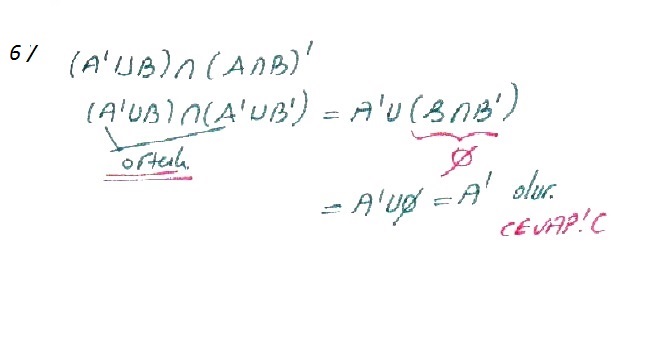 6/ (A'∪B)∩(A∩B)'
(A'∪B)∩(A'∪B') = A'∪(B∩B')
ortak. ∅
= A'∪∅ = A' olur.
CEVAP: C